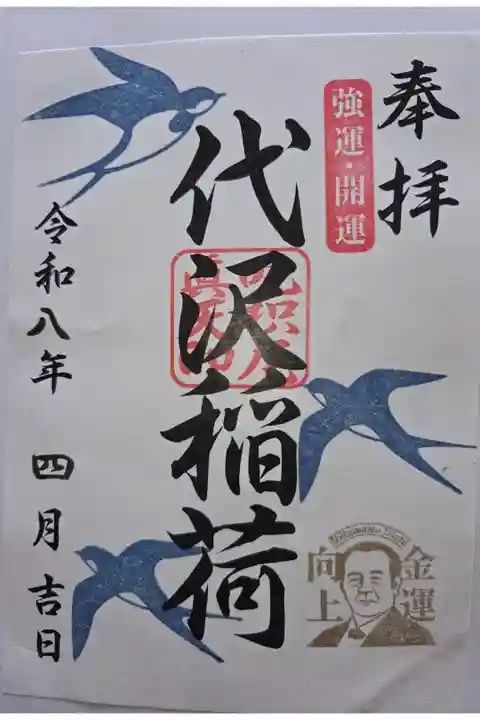 奉拝
強運・開運
代沢稲荷
金運
向上
令和八年 四月吉日